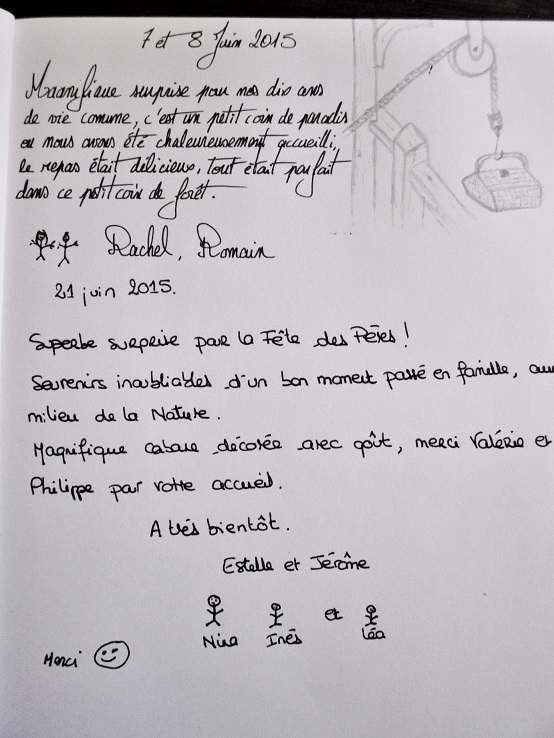 7 et 8 Juin 2015
Magnifique surprise pour nos dix ans
de vie commune, c'est un petit coin de paradis
ou nous avons été chaleureusement accueilli,
le repas était délicieux, tout était parfait
dans ce petit coin de forêt.
Rachel, Romain
21 juin 2015.
Superbe surprise pour la Fête des Pères !
Souvenirs inoubliables d'un bon moment passé en famille, au
milieu de la Nature.
Magnifique cabane décorée avec goût, merci Valérie et
Philippe pour votre accueil.
A très bientôt.
Estelle et Jérôme
Nina Inès et Léa
Merci